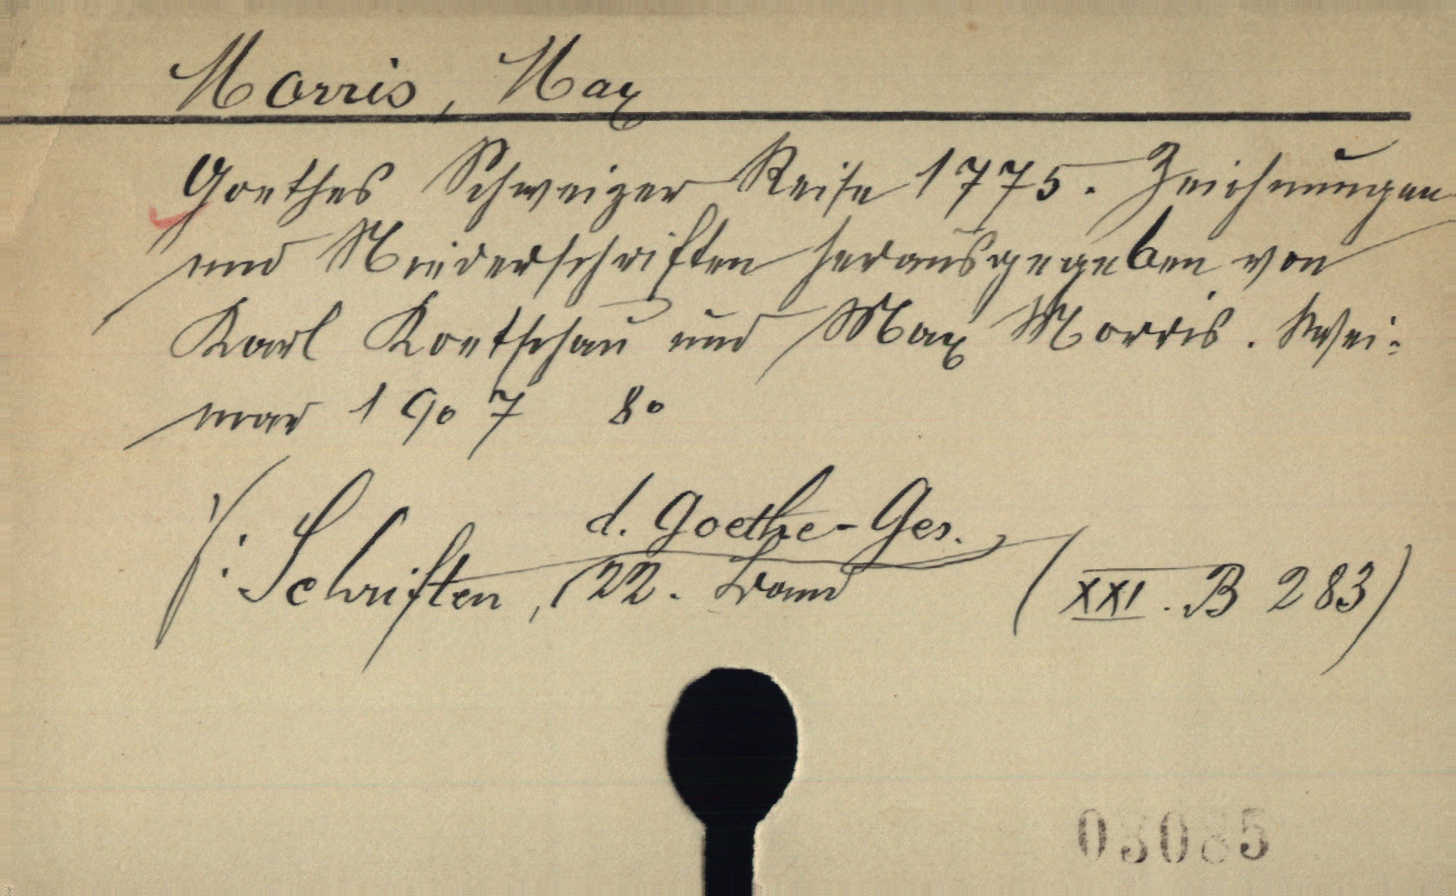 Morris, Max
Goethes Schweizer Reise 1775. Zeichnungen
und Niederschriften herausgegeben von
Karl Koetschau und Max Morris. Wei-
mar 1907 8°
d. Goethe-Ges.
f: Schriften, 22. Band (XXI. B 283)
03085